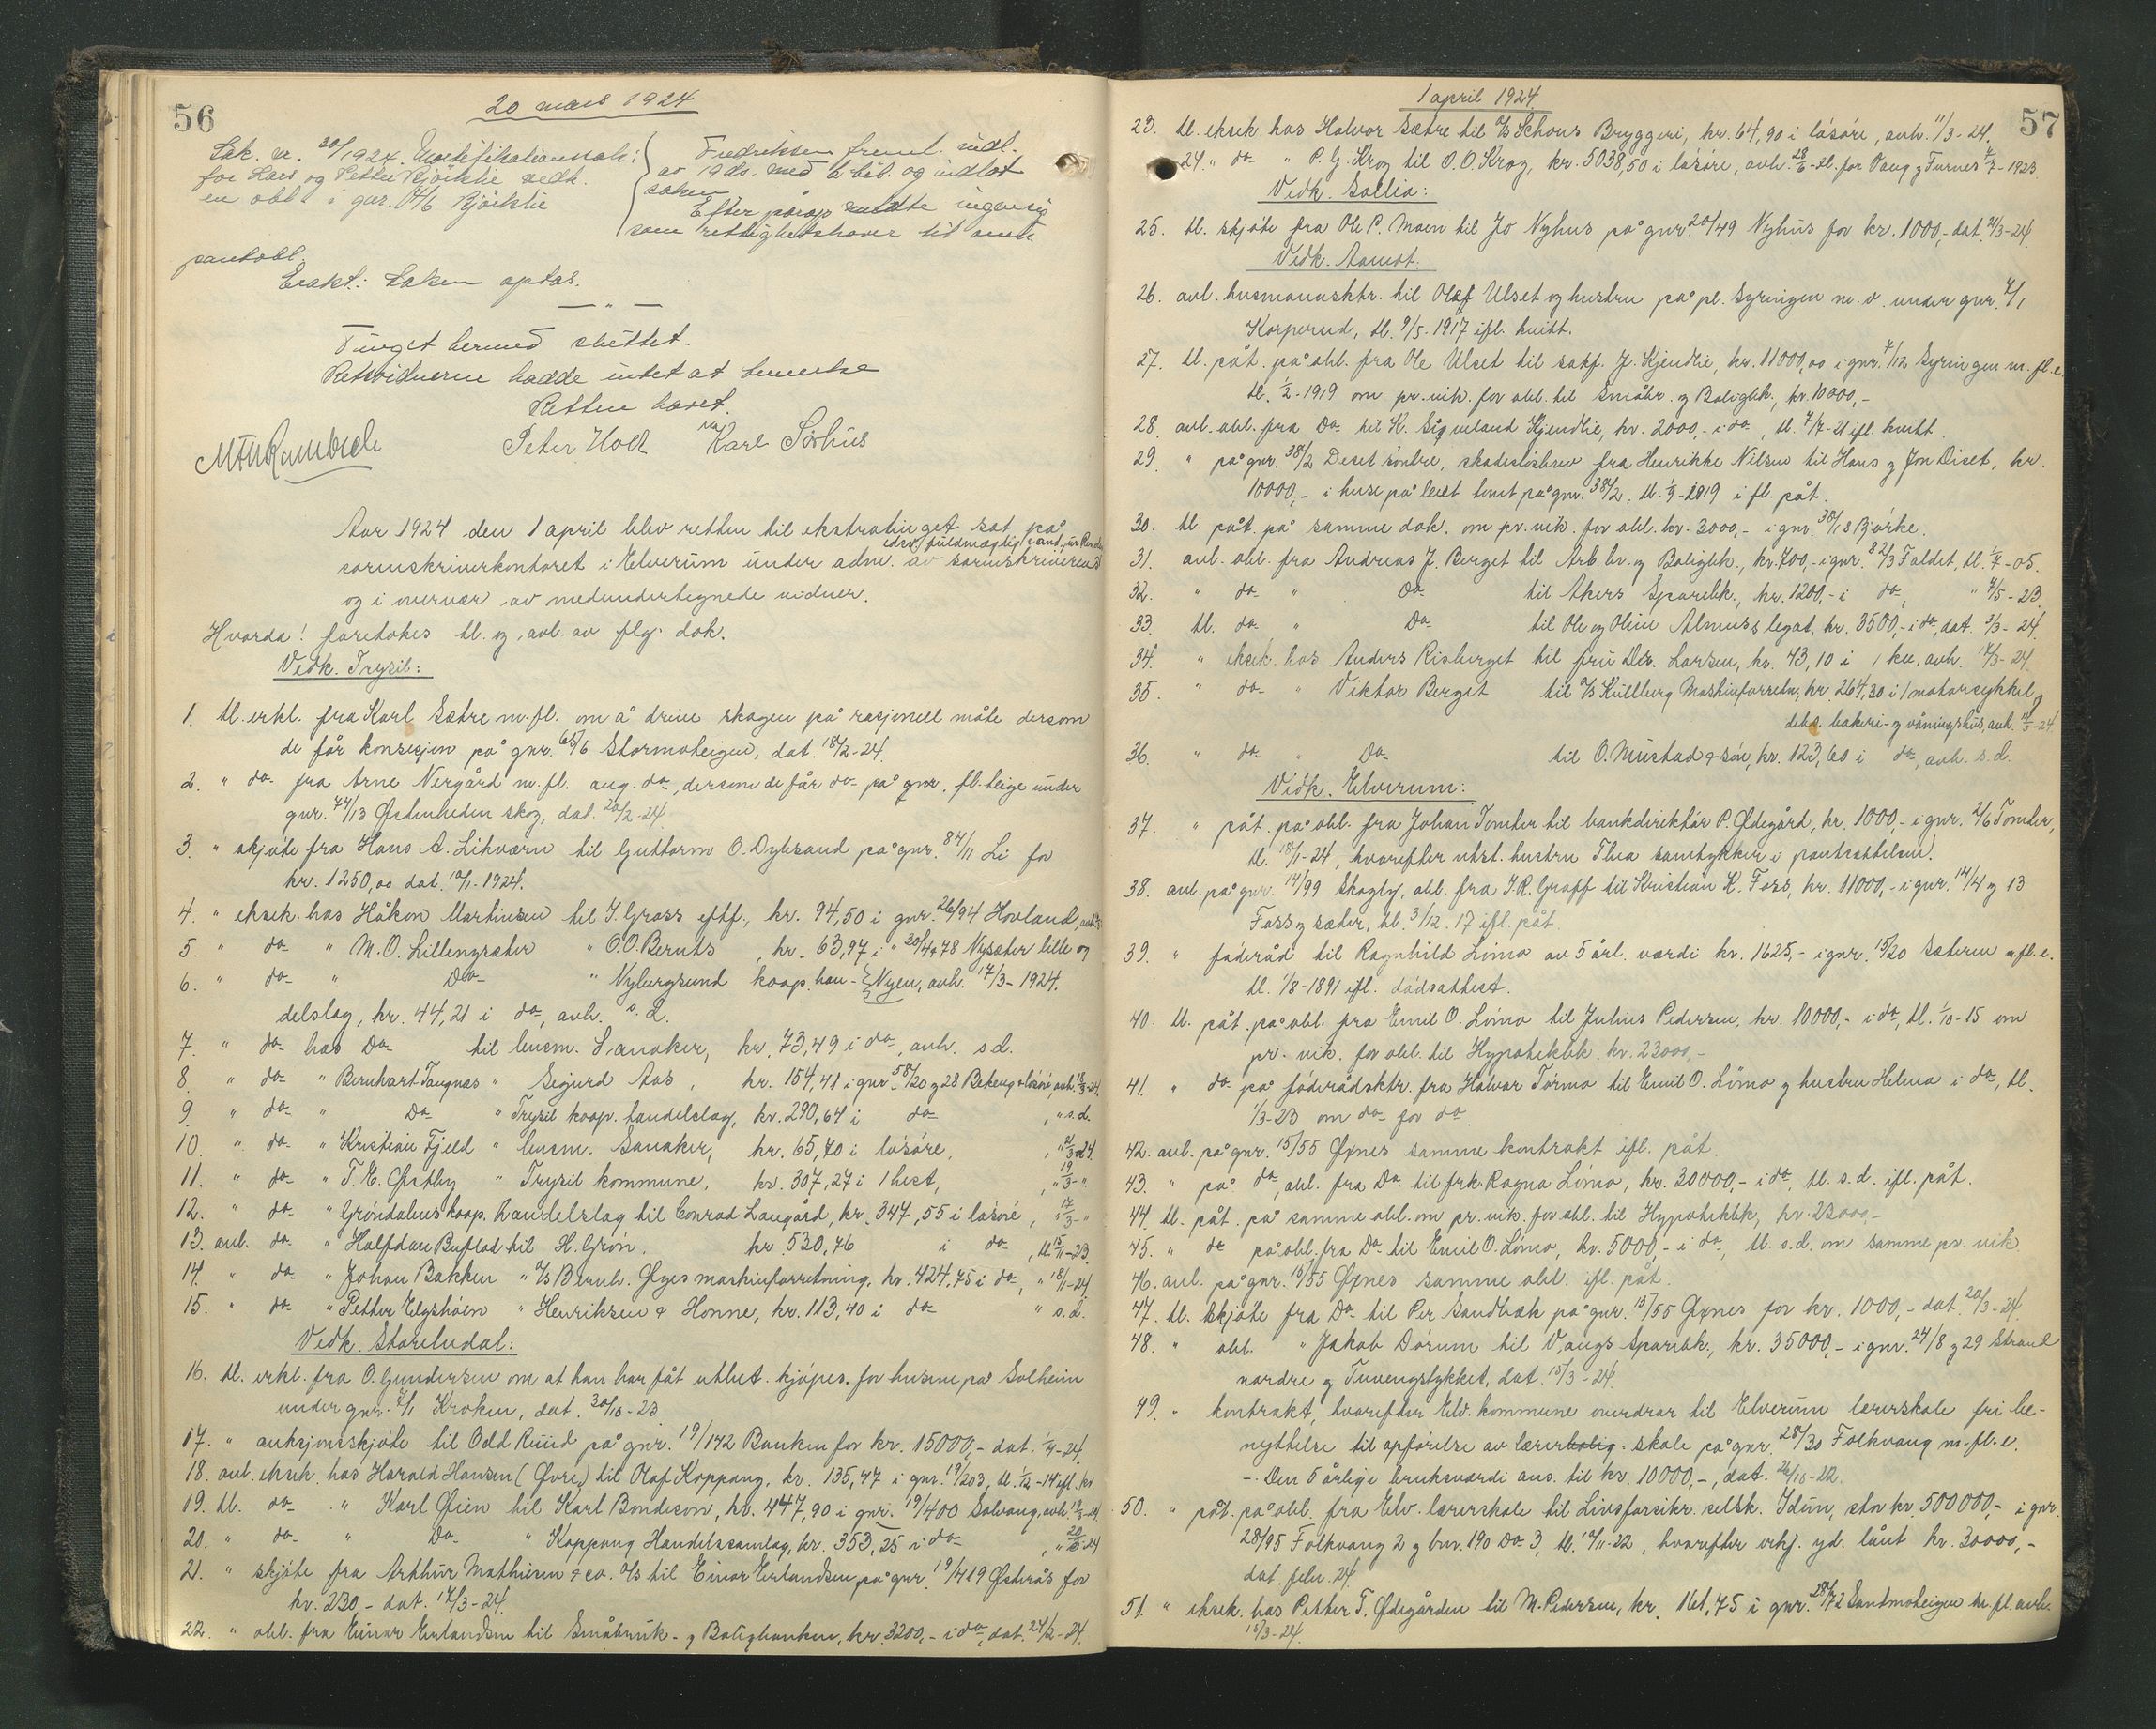 56
20 mars 1924
Sak. nr. 30/1924. Mortifikationssak:
for Lars og Petter Kjøiklie vedk.
en obl. i gnr. Kjøiklie
Fredriksen freml. indl.
av 19 ds. med bibl. og indlot
saken
Efter påråp meldte ingen sig
som rettighetshaver til omh.
pantobl.
Erakt: Saken optas.
— " —
Tinget hermed sluttet.
Retsvidnerne hadde intet at bemerke
Retten hævet.
Peter Holt Karl Sørhus
Aar 1924 den 1 april blev retten til ekstratinget sat på
edsv. fuldmægtig cand. jur.
sorenskriverkontoret i Elverum under adm. av sorenskriveren
og i overvær av medundertegnede vidner.
Hvorda! foretokes tl. og avl. av flg. dok.
Vedk. Trysil:
1. tl. erkl. fra Karl Sætre m. fl. om å drive skogen på rasjonell måte dersom
de får konsesjon på gnr. 65/6 Stormoteigen, dat. 18/2-24.
2. " do fra Arne Nergård m. fl. ang. do, dersom de får do på gnr. fl. teige under
gnr. 44/13 Østenheden skog, dat. 20/2-24
3. " skjøte fra Hans A. Likværn til Guttorm O. Dybsand på gnr. 84/11 Li for
kr. 1250,00 dat. 10/1-1924.
4. " eksek. hos Håkon Martinsen til J. Grass eftf., kr. 94,50 i gnr. 26/94 Hovland,
5. " do " M. O. Lillengsæter " O. O. Beruts, kr. 63,97 i " 30/4+78 Nysæter lille og
6. " do " Do " Nybergsund koop. han- Nyen, avh. 17/3-1924.
delslag, kr. 44,21 i do, avh. s. d.
7. " do hos Do til lensm. Sanaker, kr. 73,49 i do, avh. s d.
8. " do " Bernhart Tangnæs " Sigurd Aas, kr. 154,41 i gnr. 58/20 g 28 Bekeng + løsøre, avh. 18/3-24.
9. " do " Do " Trysil koop. handelslag, kr. 290,64 i do, " s. d.
10. " do " Kristian Fjeld " lensm. Sanaker, kr. 65,70 i løsøre, " 21/3 24
11. " do " T. E. Østby " Trysil kommune, kr. 307,27 i 1 hest, " 19/3 - "
12. " do " Grøndalens koop. handelslag til Conrad Langård, kr. 347,55 i løsøre, " 17/3 - "
13. avl. do " Halfdan Buflod til H. Grøn. kr. 530,76 i do, tl. 15/11-23.
14. " do " Johan Bakken " A/S Bernh. Øyes maskinforretning, kr. 424,75 i do, " 18/1-24.
15. " do " Petter Elgshøen " Henriksen & Honne, kr. 113,40 i do " s. d.
Vedk. Storelvdal:
16. tl. erkl. fra O. Gundersen om at han har fåt utbet. kjøpes. for husene på Solheim
under gnr. 7/1 Kroken, dat. 30/10-23
17. " auksjonsskjøte til Odd Ruud på gnr. 19/142 Banken for kr. 15000,- dat. 1/4-24.
18. avl. eksek. hos Harald Hansen (Øvre) til Olaf Koppang, kr. 135,47 i gnr. 19/203, tl. 1/12-14 ifl. kv.
19. tl. do " Karl Øien til Karl Bondeson, kr. 447,90 i gnr. 19/400 Solvang, avh.
20. " do " Do " Koppang Handelssamlag, kr. 353,25 i do, "
21. " skjøte fra Arthur Mathiesen & co. A/S til Einar Erlandsen på gnr. 19/419 Østerås for
kr. 230,- dat. 14/3-24.
22. " obl. fra Einar Erlandsen til Småbruk- g Boligbanken, kr. 3200,- i do, dat. 24/2-24.
1 april 1924.
57
23. tl. eksek. hos Halvor Sætre til A/S Schous Bryggeri, kr. 64,90 i løsøre, avh. 11/3-24.
24. " do " P. G. Krog til O. O. Krog, kr. 5038,50 i løsøre, avh. tl. for Vang g Furnes 1923.
Vedk. Sollia:
25. tl. skjøte fra Ole P. Moen til Jo Nyhus på gnr. 20/49 Nyhus for kr. 1000,- dat. 21/3-24.
Vedk. Aamot:
26. avl. husmannsktr. til Olaf Ulset og hustru på pl. Syringen m. v. under gnr. 4/1
Korperud, tl. 9/5-1917 ifl. kvitt.
27. tl. påt. på obl. fra Ole Ulset til sakf. J. Kjendlie, kr. 11000,00 i gnr. 7/12 Syringen m. fl. e.
tl. 1/2-1919 om pr. vik. for obl. til Småbr. g Boligbk., kr. 10000,-
28. avl. obl. fra Do til K. Sigveland Kjendlie, kr. 2000,- i do, tl. 7/7-21 ifl. kvitt.
29. " på gnr. 38/2 Deset søndre, skadesløsbrev fra Henrikke Nilsen til Hans g Jon Diset, kr.
10000,- i huse på leiet tomt på gnr. 38/2, tl. 1/9-1919 i fl. påt.
30. tl. påt. på samme dok. om pr. vik. for obl. kr. 3000,- i gnr. 38/18 Bjørke.
31. avl. obl. fra Andreas J. Berget til Arb. br. og Boligbk., kr. 700,- i gnr. 82/3 Faldet, tl. 1/4-05.
32. " do " Do til Akers Sparebk., kr. 1200,- i do, " 4/5-23.
33. tl. do " Do til Ole og Oline Almuss legat, kr. 3500,- i do, dat. 3/3-24.
34. " eksek. hos Anders Risberget til fru Larsen, kr. 43,10 i 1 ku, avh. 14/3-24.
35. " do " Viktor Berget til A/S Kullberg Maskinforretn., kr. 264,30 i 1 motorcykkel g
dels bakeri- g våningshus, avh. 14/3-24.
36. " do " Do til O. Mustad & søn, kr. 123,60 i do, avh. s. d.
Vedk. Elverum:
37. " påt. på obl. fra Johan Tomter til bankdirektør P. Ødegård, kr. 1000,- i gnr. 2/6 Tomter,
tl. 18/1-24, hvorefter utst. hustru Thea samtykker i pantsettelsen.
38. avl. på gnr. 14/99 Skogly, obl. fra J. R. Graff til Kristian K. Foss, kr. 11000,- i gnr. 14/4 g 13
Foss g sæter, tl. 3/12. 17 ifl. påt.
39. " føderåd til Ragnhild Lömo av 5 årl. værdi kr. 1625,- i gnr. 15/20 Sæteren m. fl. e.
tl. 1/8-1891 ifl. dødsattest.
40. tl. påt. på obl. fra Emil O. Lömo til Julius Pedersen, kr. 10000,- i do, tl. 1/10-15 om
pr. vik. for obl. til Hypotekbk. kr. 23000,-
41. " do på føderådsktr. fra Halvor Törmo til Emil O. Lömo g hustru Helma i do, tl.
1/3-23 om do for do.
42. avl. på gnr. 15/55 Øxnes samme kontrakt ifl. påt.
43. " på do, obl. fra Do til frk. Ragna Lömo, kr. 30000,- i do, tl. s. d. ifl. påt.
44. tl. påt. på samme obl. om pr. vik. for obl. til Hypotekbk, kr. 23000,-
45. " do på obl. fra Do til Emil O. Lömo, kr. 5000,- i do, tl. s. d. om samme pr. vik.
46. avl. på gnr. 15/55 Øxnes samme obl. ifl. påt.
47. tl. skjøte fra Do til Per Sandbæk på gnr. 15/55 Øxnes for kr. 1000,- dat. 20/3-24.
48. " obl. " Jakob Dörum til Vangs Sparebk., kr. 35000,- i gnr. 24/8 g 29 Strand
nordre g Tuvengstykket, dat. 15/3-24.
49. " kontrakt, hvorefter Elv. kommune overdrar til Elverum lærerskole fri be-
nyttelse til opførelse av lærerbolig. skole på gnr. 28/30 Folkvang m. fl. e.
-. Den 5 årlige bruksværdi ans. til kr. 10000,-, dat. 26/10-22.
50. " påt. på obl. fra Elv. lærerskole til Livsforsikr. selsk. Idun, stor kr. 500000,- i gnr.
28/95 Folkvang 2 g bnr. 190 Do 3, tl. 10/11-22, hvorefter erkj. yd. lånt kr. 30000,-
dat. febr. 24.
51. " eksek. hos Petter T. Ødegården til M. Pedersen, kr. 161,75 i gnr. 28/72 Sandmoteigen m. fl. avh.
15/3-24.